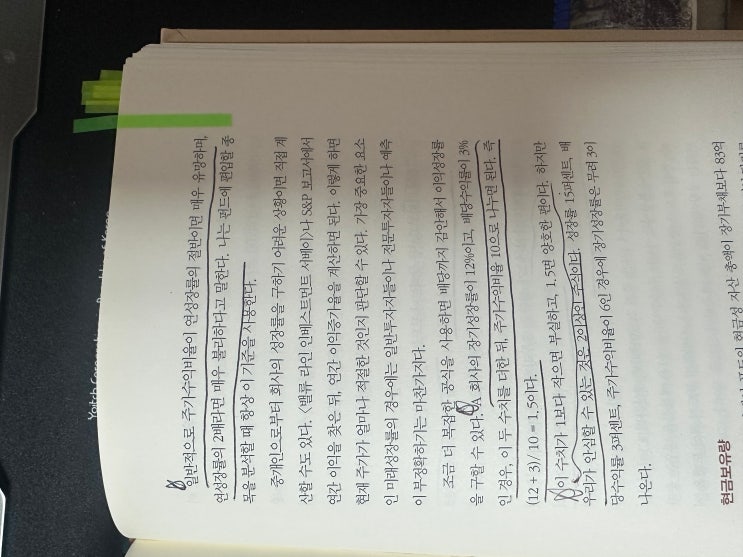 일반적으로 주가수익비율이 연성장률의 절반이면 매우 유망하며,
연성장률의 2배라면 매우 불리하다고 말한다. 나는 펀드에 편입할 종
목을 분석할 때 항상 이 기준을 사용한다.
중개인으로부터 회사의 성장률을 구하기 어려운 상황이면 직접 계
산할 수도 있다. 〈밸류 라인 인베스트먼트 서베이〉나 S&P 보고서에서
연간 이익을 찾은 뒤, 연간 이익증가율을 계산하면 된다. 이렇게 하면
현재 주가가 얼마나 적절한 것인지 판단할 수 있다. 가장 중요한 요소
인 미래성장률의 경우에는 일반투자자들이나 전문투자자들이나 예측
이 부정확하기는 마찬가지다.
조금 더 복잡한 공식을 사용하면 배당까지 감안해서 이익성장률
을 구할 수 있다. A 회사의 장기성장률이 12%이고, 배당수익률이 3%
인 경우, 이 두 수치를 더한 뒤, 주가수익비율 10으로 나누면 된다. 즉
(12 + 3) / 10 = 1.5이다.
이 수치가 1보다 작으면 부실하고, 1.5면 양호한 편이다. 하지만
우리가 안심할 수 있는 것은 2이상인 주식이다. 성장률 15퍼센트, 배
당수익률 3퍼센트, 주가수익비율이 6인 경우에 장기성장률은 무려 3이
나온다.
현금보유량
현금성 자산 총액이 장기부채보다 83억